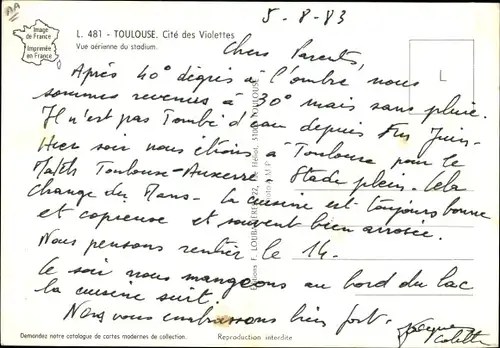 AA
5-8-83
Image
de France
Imprimée
en France
L. 481 - TOULOUSE. Cité des Violettes
Vue aérienne du stadium.
L
Chers Parents,
Après 40° dégrés à l'ombre, nous
sommes revenus à 30° mais sans pluie.
Il n'est pas tombé d'eau depuis fin Juin.
Hier soir nous étions à Toulouse pour le
Match Toulouse-Auxerre. Stade plein. Cela
change du Mans. La cuisine est toujours bonne
et copieuse et souvent bien arrosée.
Nous pensons rentrer le 14.
Ce soir nous mangeons au bord du lac
la cuisine suit.
Nous vous embrassons bien fort.
Colette
Demandez notre catalogue de cartes modernes de collection.
Reproduction interdite